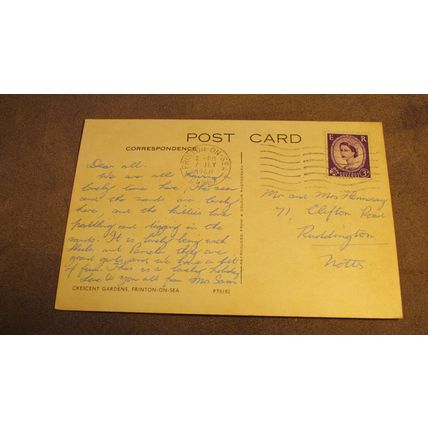 POST CARD
CORRESPONDENCE
FRINTON-ON-SEA
JLY
1960
E R
POSTAGE
3D
Dear all.
We are all having a
lovely time here, The sea
and the sands are lovely
here, and the kiddies love
paddling and digging in the
sands. It is lovely being with
Sheila and Pamela they are
good girls and we have a lot
of fun. This is a lovely holiday
Love to you all from Mrs Sam
Mr and Mrs Hemsray
71, Clifton Road
Ruddington
Notts
CRESCENT GARDENS, FRINTON-ON-SEA
PT8182